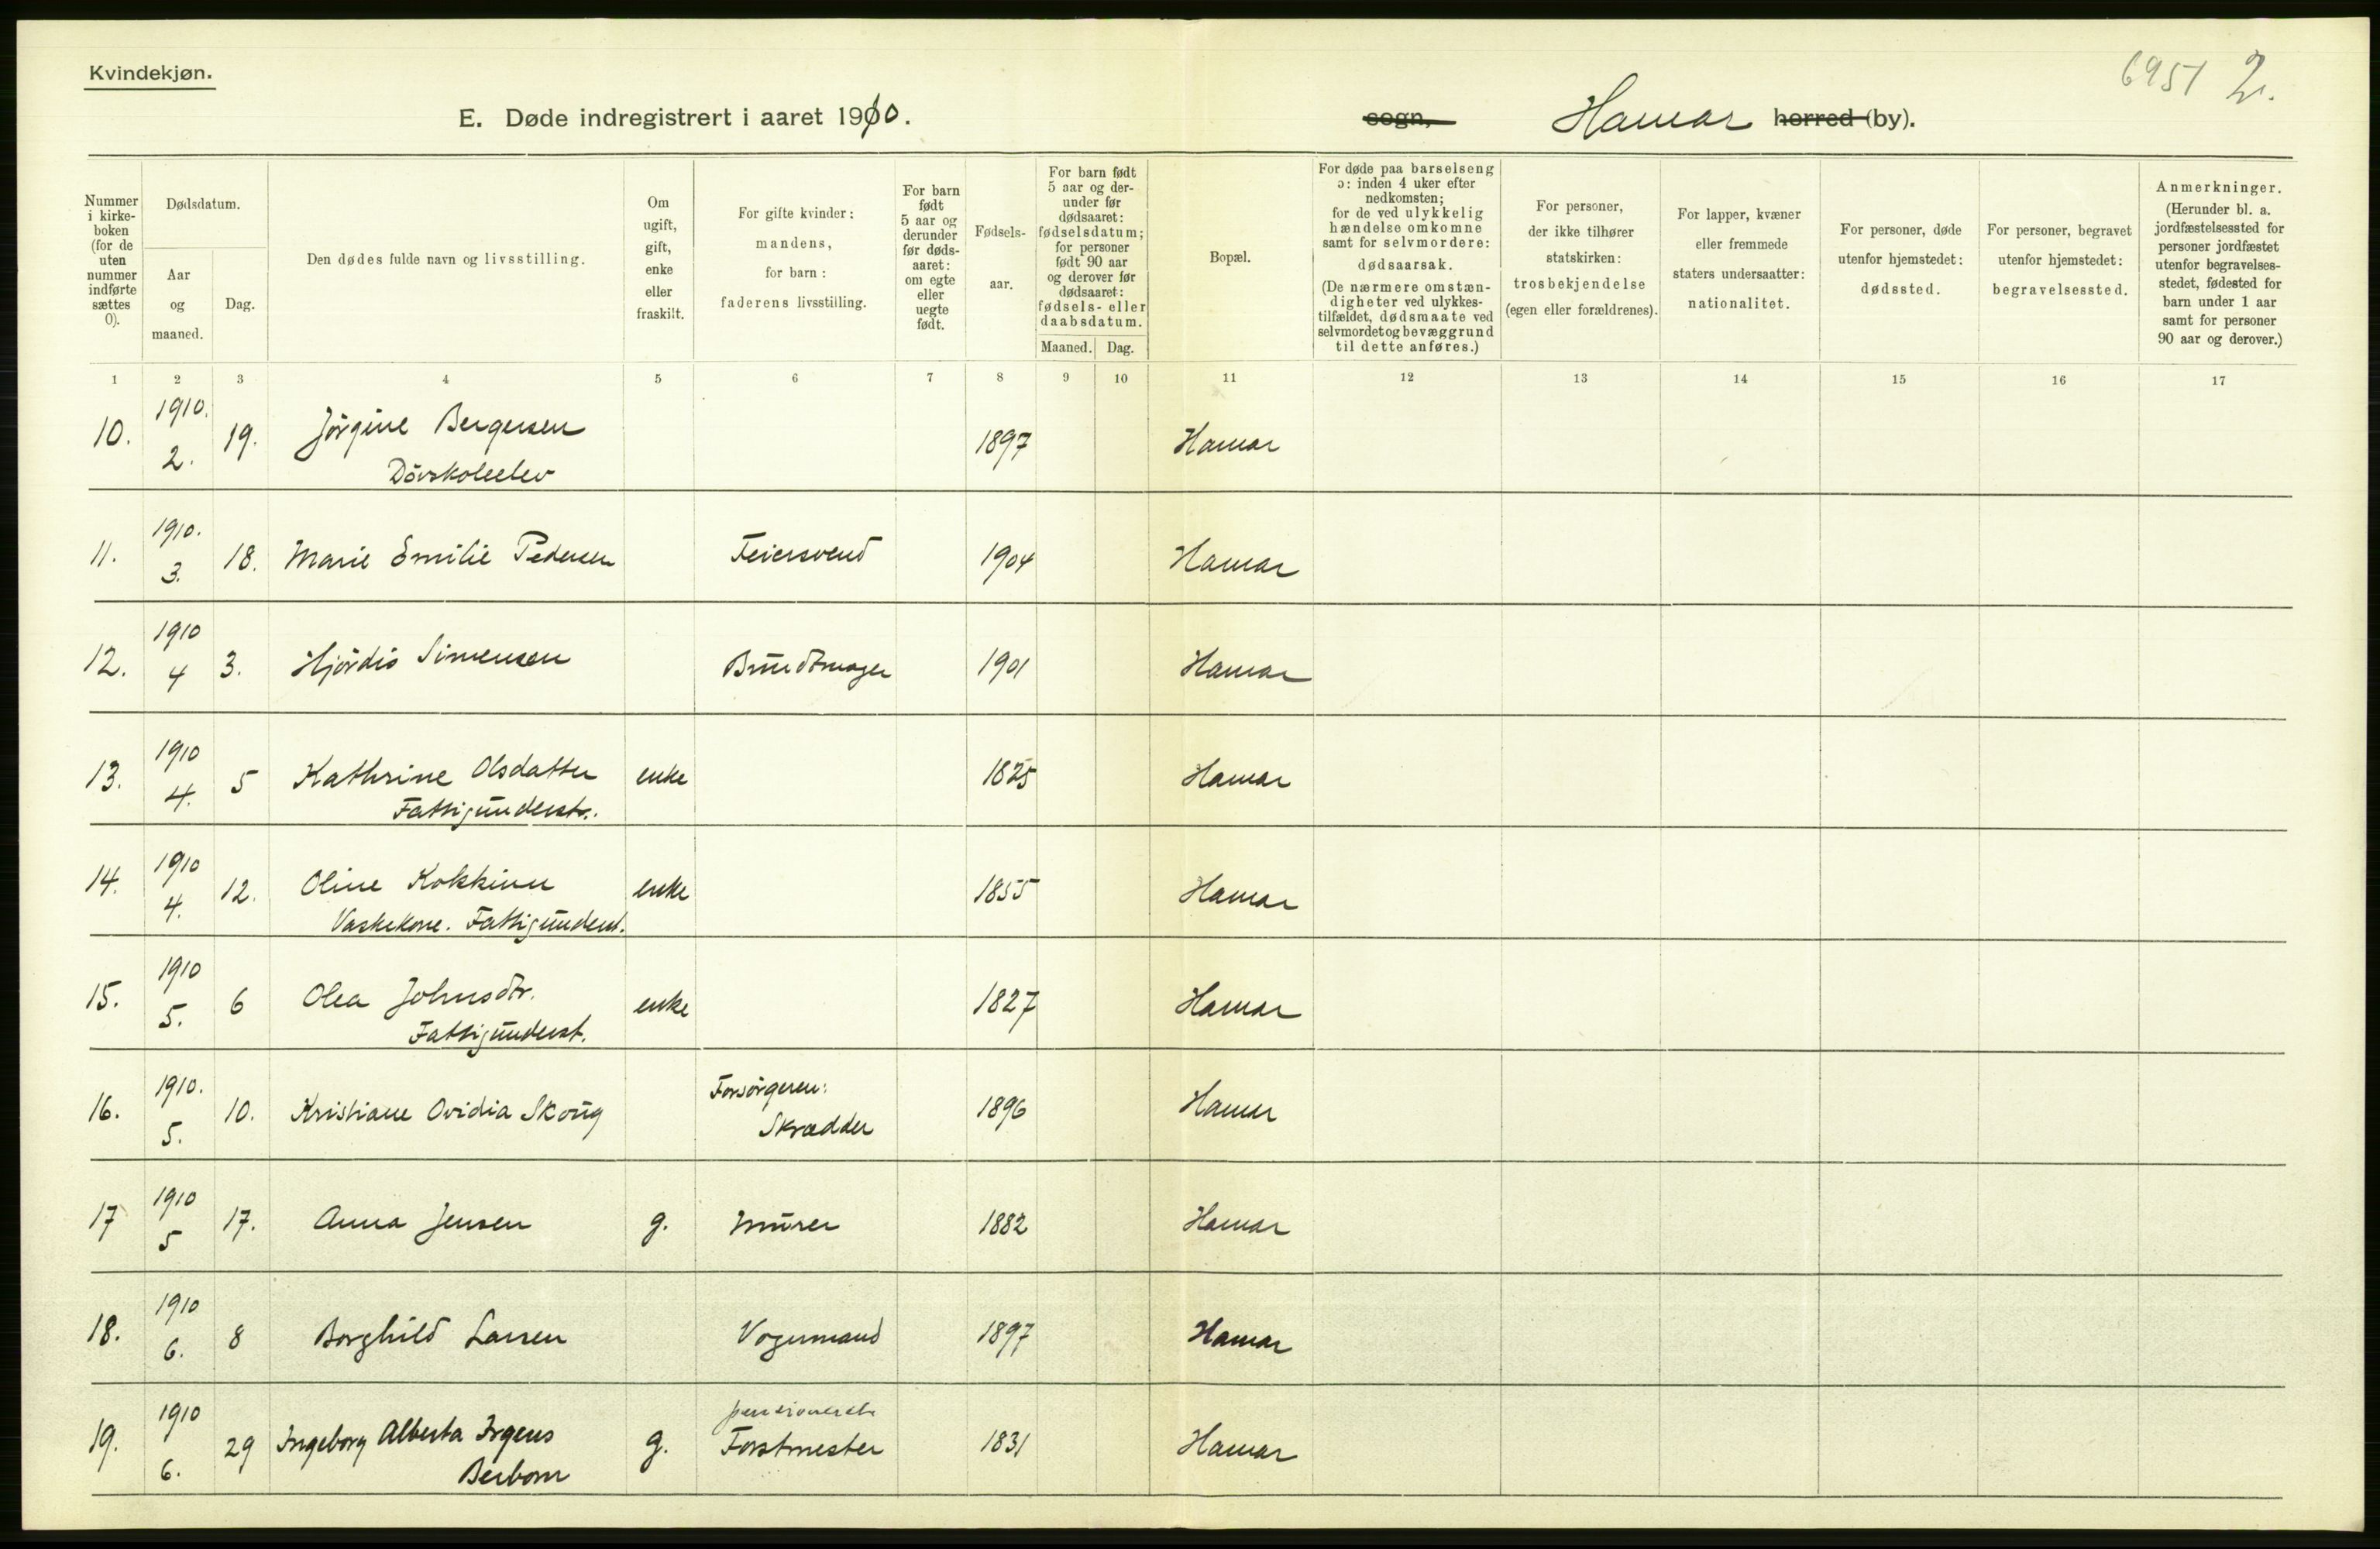 Kvindekjøn.
6951 2.
E. Døde indregistrert i aaret 1910.
sogn, Hamar herred (by).
Nummer i kirkeboken (for de uten nummer indførte sættes 0).
Dødsdatum.
Aar og maaned.
Dag.
Den dødes fulde navn og livsstilling.
Om ugift, gift, enke eller fraskilt.
For gifte kvinder: mandens, for barn: faderens livsstilling.
For barn født 5 aar og derunder før dødsaaret: om egte eller uegte født.
Fødselsaar.
For barn født 5 aar og derunder før dødsaaret: fødselsdatum; for personer født 90 aar og derover før dødsaaret: fødsels- eller daabsdatum.
Maaned. Dag.
Bopæl.
For døde paa barselseng ɔ: inden 4 uker efter nedkomsten; for de ved ulykkelig hændelse omkomne samt for selvmordere: dødsaarsak.
(De nærmere omstændigheter ved ulykkestilfældet, dødsmaate ved selvmordet og bevæggrund til dette anføres.)
For personer, der ikke tilhører statskirken: trosbekjendelse (egen eller forældrenes).
For lapper, kvæner eller fremmede staters undersaatter: nationalitet.
For personer, døde utenfor hjemstedet: dødssted.
For personer, begravet utenfor hjemstedet: begravelsessted.
Anmerkninger.
(Herunder bl. a. jordfæstelsessted for personer jordfæstet utenfor begravelsesstedet, fødested for barn under 1 aar samt for personer 90 aar og derover.)
1 2 3 4 5 6 7 8 9 10 11 12 13 14 15 16 17
10. 1910. 2. 19. Jörgine Bergersen 1897 Hamar
Dövskoleelev
11. 1910. 3. 18. Marie Emilie Pedersen Feiersvend 1904 Hamar
12. 1910 4 3. Hjördis Simensen Bundtmager 1901 Hamar
13. 1910 4. 5 Kathrine Olsdatter enke 1825 Hamar
Fattigunderst.
14. 1910 4. 12. Oline Kokkinn enke 1855 Hamar
Vaskekone. Fattigunderst.
15. 1910 5. 6 Olea Johnsdtr. enke 1827 Hamar
Fattigunderst.
16. 1910. 5. 10. Kristiane Ovidia Skoug Forsörgeren: Skrædder 1896 Hamar
17 1910 5 17. Anna Jensen g. Murer 1882 Hamar
18. 1910 6. 8 Borghild Larsen Vognmand 1897 Hamar
19. 1910 6. 29 Ingeborg Alberta Irgens g. pensioneret Forstmester 1831 Hamar